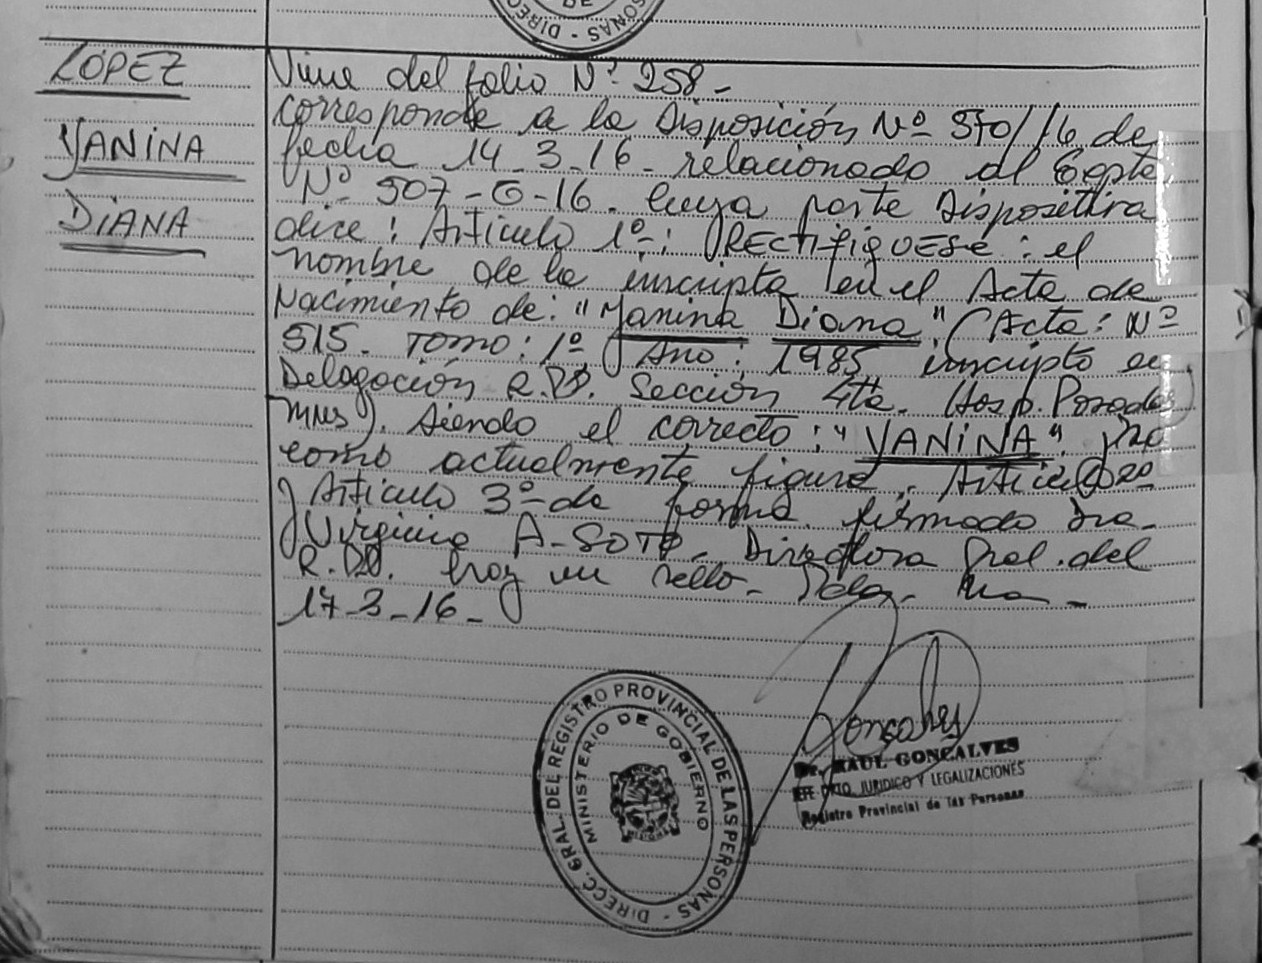 DIRECC
DE
SONAS
LÓPEZ
YANINA
DIANA
Viene del folio Nº 258 -
corresponde a la Disposición Nº 570/16 de
fecha 14-3-16- relacionado al Expte
Nº 507-G-16. cuya parte Dispositiva
dice: Artículo 1º-: RECTIFIQUESE: el
nombre de la inscripta en el Acta de
Nacimiento de: "Yanina Diana" (Acta: Nº
515. Tomo: 1º Año: 1985 inscripto en
Delegación R.P.P. Sección 4ta. Hosp. Posadas
Mnes). siendo el correcto: "YANINA" y no
como actualmente figura. Artículo 2º
y Artículo 3º- de forma. firmado Dra.
Virginia A-SOTO- Directora Gral. del
R.P.P. hay un sello- Pdas. Mnes-
17-3-16-
Goncalves
Dr. RAUL GONCALVES
JEFE DPTO. JURIDICO Y LEGALIZACIONES
Registro Provincial de las Personas
DIRECC. GRAL. DEL REGISTRO PROVINCIAL DE LAS PERSONAS -
MINISTERIO DE GOBIERNO